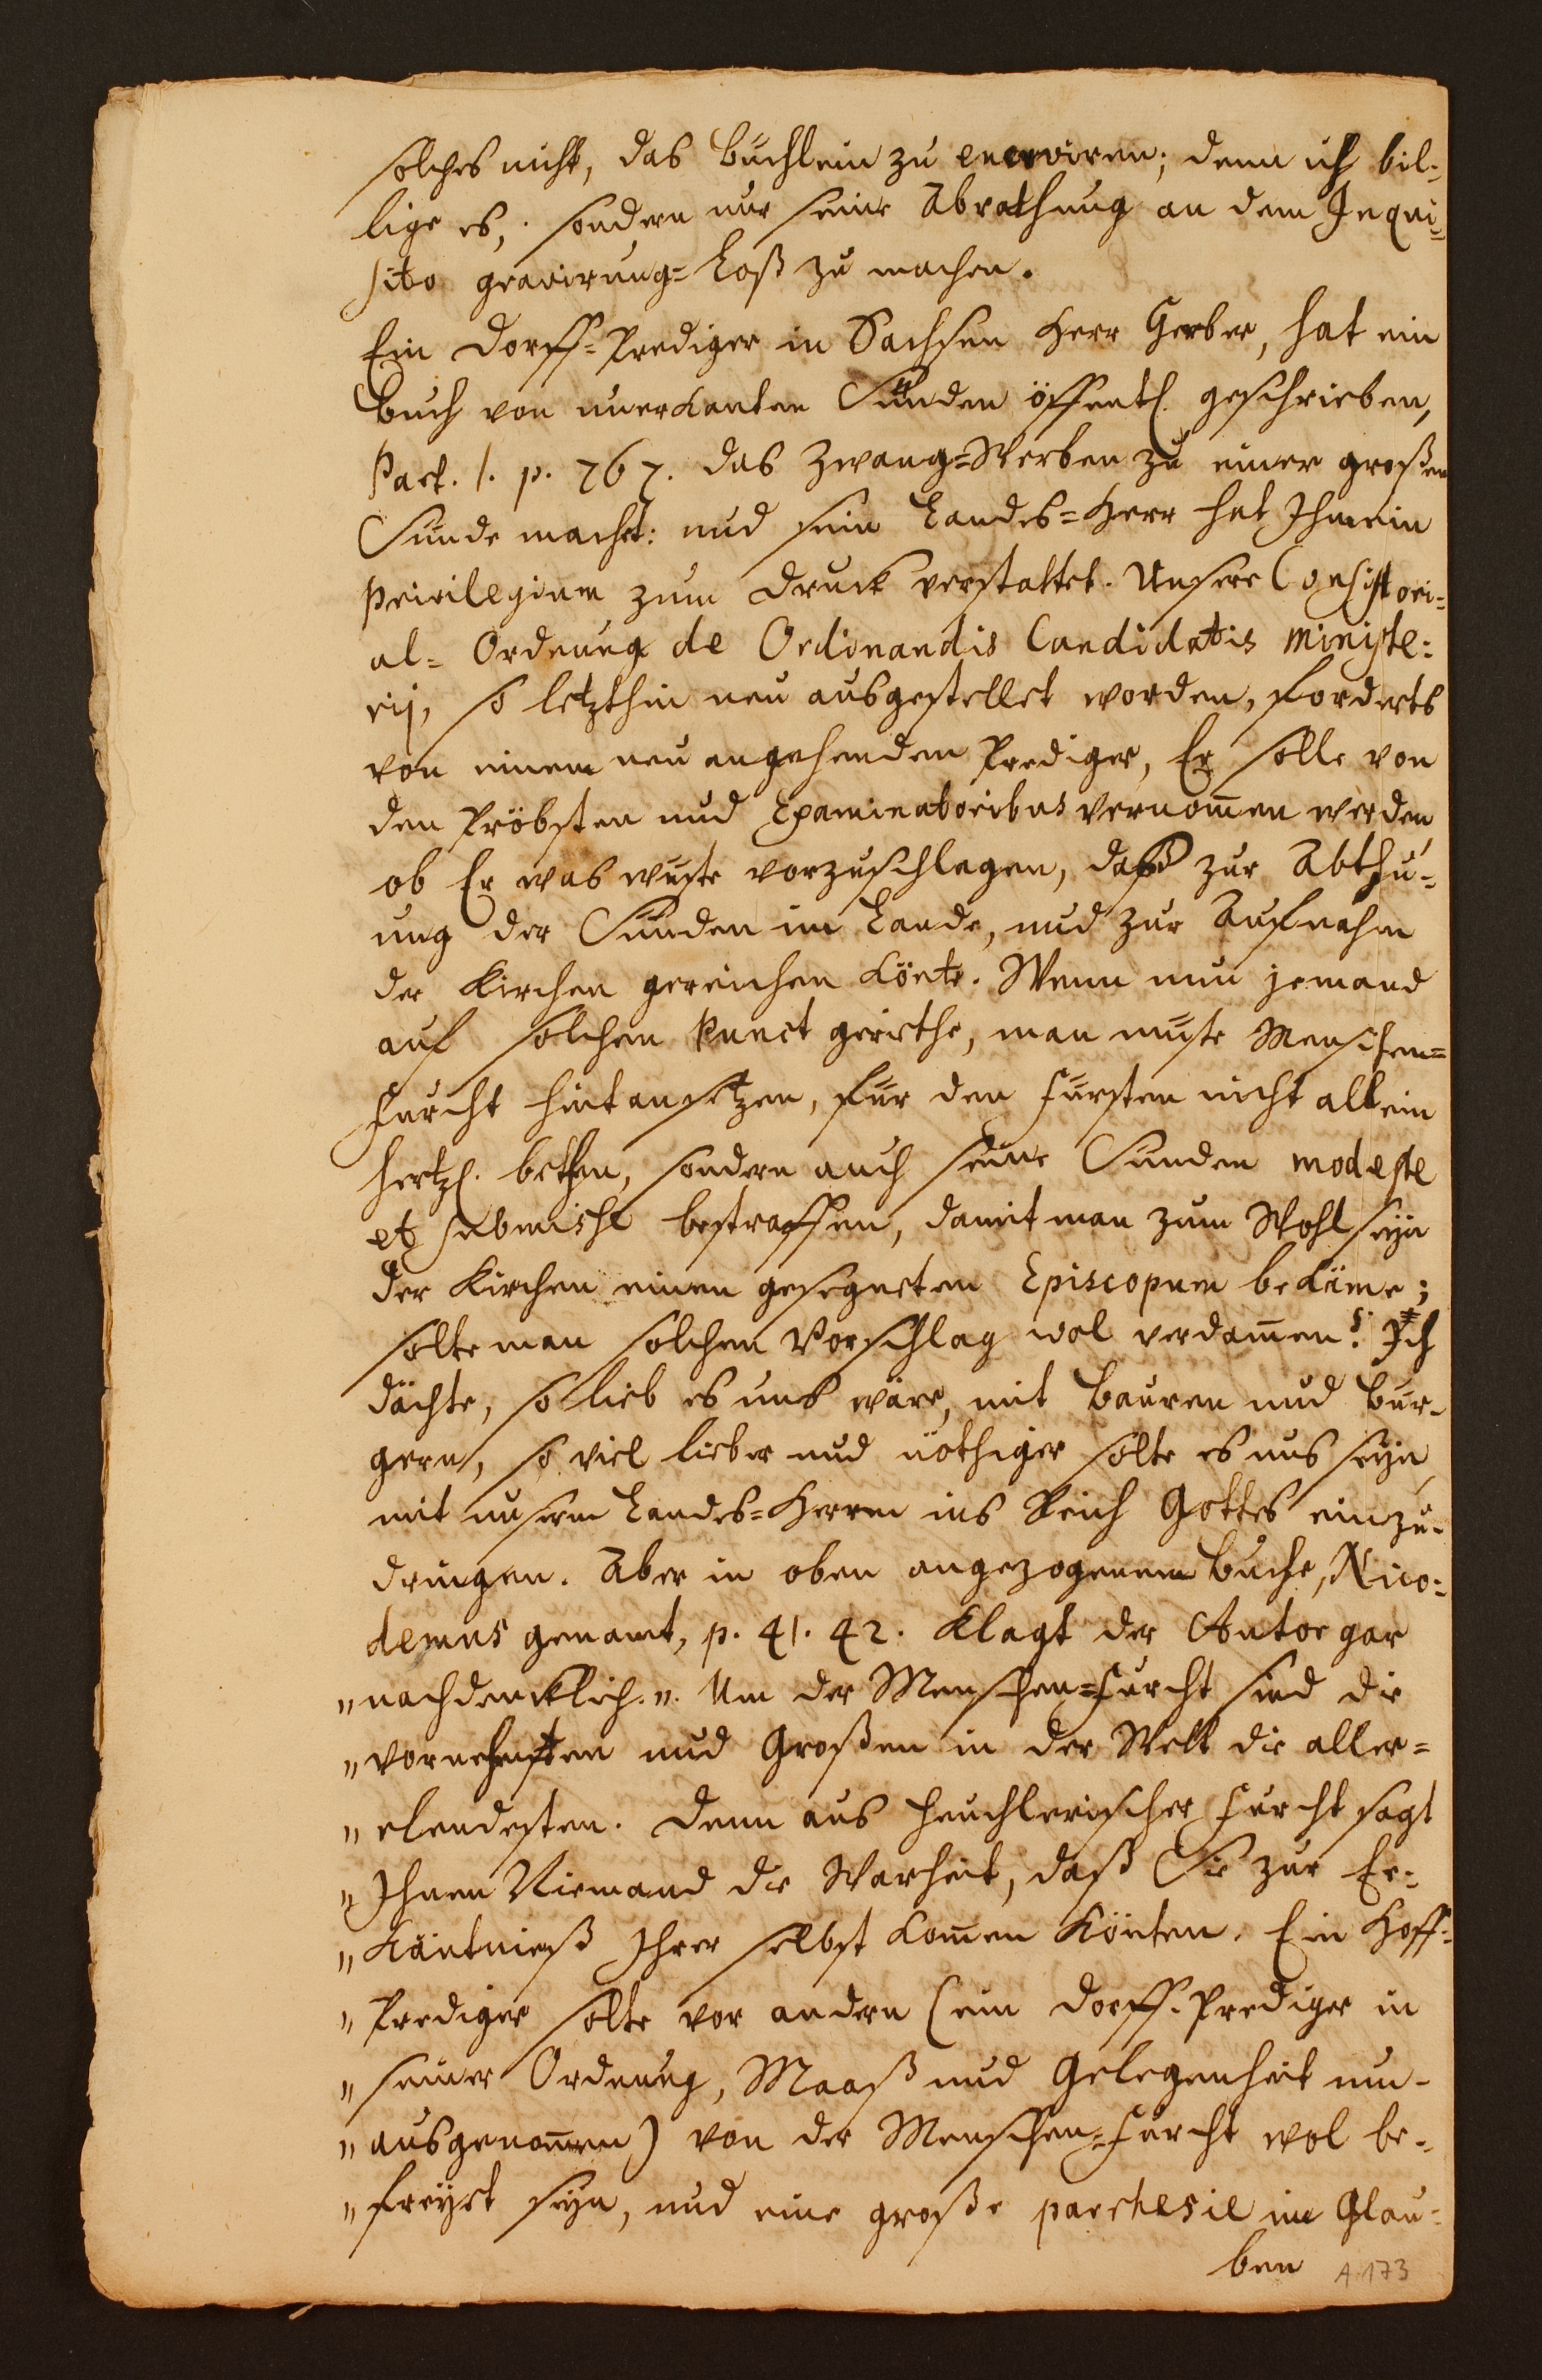 solches nicht, das Büchlein zu enerviren; denn ich bil-
lige es, sondern nur seine Abrathung an dem Inqui=
sito gravirung= Loß zu machen.
Ein Dorff=Prediger in Sachsen Herr Gerber, hat ein
Buch von unerkanten Sünden öffentl. geschrieben,
Part. 1. p. 767. das Zwang=Werben zu einer großen
Sünde macht: und sein Landes=Herr hat Ihm ein
Privilegium zum Druck verstattet. Unsere Consistori=
al= Ordnung de Ordinandis Candidatis Ministe=
rij, so letzthin neu ausgestellet worden, forderts
von einem neu angehenden Prediger, Er solle von
den Pröbsten und Examinatoribus vernom̄en werden
ob Er was wüste vorzuschlagen, daß zur Abthu-
ung der Sünden im Lande, und zur Aufnahm
der Kirchen gereichen könte. Wenn nun jemand
auf solchen Punct geriethe, man müste Menschen=
furcht hintansetzen, für den Fürsten nicht allein
hertzl. bethen, sondern auch seine Sünden modeste
et submisse bestraffen, damit man zum Wohlseyn
der Kirchen einen gesegneten Episcopum bekäme;
solte man solchen Vorschlag wol verdam̄en? Ich
dächte, so lieb es uns wäre, mit Bauren und Bür-
gern, so viel lieber und nöthiger solte es uns seyn
mit unserm Landes=Herrn ins Reich Gottes einzu-
dringen. Aber in oben angezogenem Buche, Nico=
demus genant, p. 41. 42. klagt der Autor gar
„nachdencklich. „. Um der Menschen=Furcht sind die
„vornehmsten und Großen in der Welt die aller=
„elendesten. Denn aus heuchlerischer Furcht sagt
„Ihnen Niemand die Warheit, daß Sie zur Er=
„käntnieß Ihrer selbst kom̄en könten. Ein Hoff=
„Prediger solte vor andern (ein Dorff-Prediger in
„seiner Ordnung, Maaß und Gelegenheit un-
„ausgenom̄en) von der Menschen=Furcht wol be-
„freyet seyn, und eine große parrhesie im Glau-
ben A 173